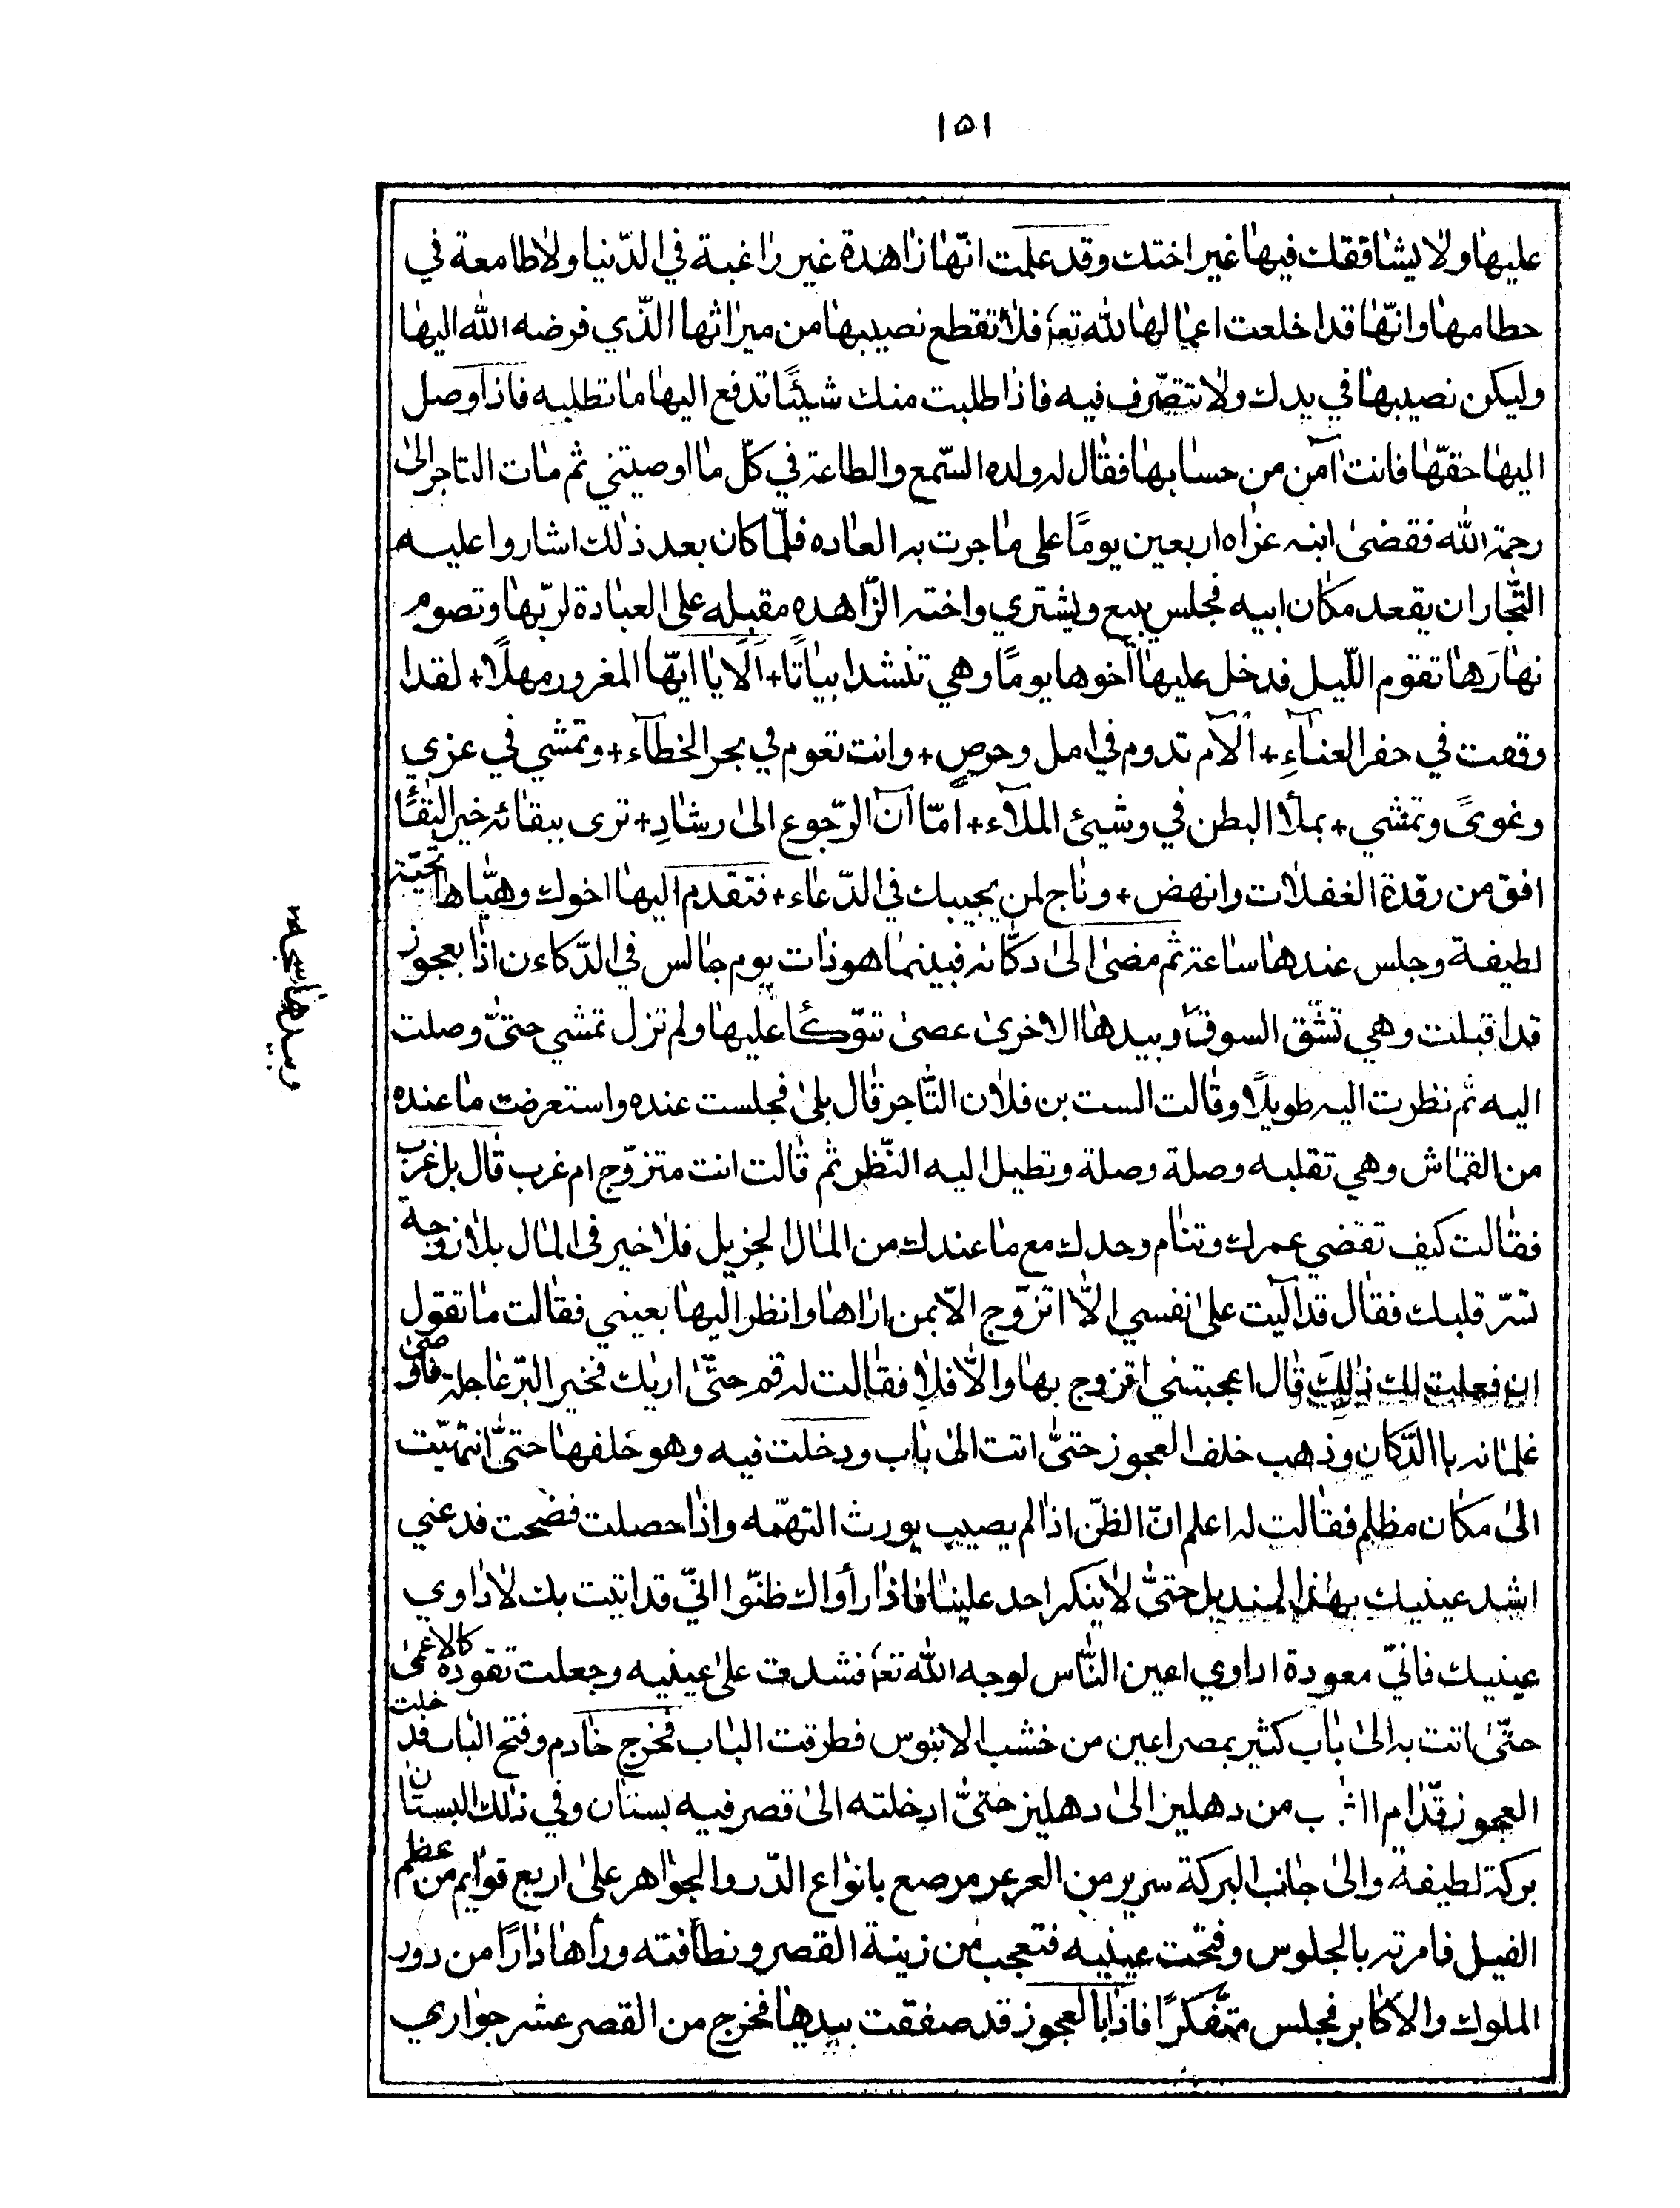 ١٥١
عليها ولا يشاققك فيها غير اختك وقد علمت انّها زاهدة غير راغبة في الدّنيا ولا طامعة في
حطامها وانّها قد اخلعت اعمالها لله تعا فلا تقطع نصيبها من ميراثها الذّي فرضه الله اليها
وليكن نصيبها في يدك ولا تتصّرف فيه فاذا طلبت منك شيئًا تدفع اليها ما تطلبه فاذا وصل
اليها حقّها فانت آمن من حسابها فقال له ولده السّمع والطاعة في كلّ ما اوصيتني ثم مات التاجر الى
رحمة الله فقضىٰ ابنه عزاه اربعين يومًا على ما جرت به العاده فلمّا كان بعد ذلك اشاروا عليه
التّجار ان يقعد مكان ابيه فجلس يبيع ويشتري واخته الزّاهده مقبله على العبادة لربّها وتصوم
نهارَها تقوم اللّيل فدخل عليها اخوها يومًا وهي تنشد ابياتًا + اَلَا يا ايّها المغرور مهلًا + لقد ا
وقعت في حفر العناءِ + الام تدوم في امل وحرصٍ + وانت تعوم في بحر الخطآء + وتمشي في عزي
وغوىً وتمشي + بملأ البطن في وشيئ الملآء + امّا آن الرّجوع الىٰ رشادِ + ترى ببقائه خير البقئا
افق من رقدة الغفلات وانهض + وناج لمن يجيبك في الدّعاء + فتقدم اليها اخوك وهيّاها تحيّة
لطيفة وجلس عندها ساعة ثم مضىٰ الىٰ دكّانه فبينما هو ذات يوم جالس في الدّكاءن اذا بعجوز
قد اقبلت وهي تشّق السوق وبيدها الاخرىٰ عصىٰ تتوّكأ عليها ولم تزل تمشي حتىّٰ وصلت
وبيدها سبحه
اليه ثم نظرت اليه طويلًا وقالت الست بن فلان التّاجر قال بلىٰ فجلست عنده واستعرضت ما عنده
من القماش وهي تقلبه وصلة وصلة وتطيل اليه النّظر ثم قالت انت متزوّج ام غرب قال بل غرب
فقالت كيف تقضي عمرك وتنام وحدك مع ما عندك من المال الجزيل فلا خير في المال بلا زوجة
تسرّ قلبك فقال قد آليت علىٰ نفسي الاّ اتزوّج الاّ بمن اراها وانظر اليها بعيني فقالت ما تقول
ان فعلت لك ذلك قال اعجبتني اتزوج بها والاّ فلا فقالت له قم حتّىٰ اريك فخير البرّ عاجلة فاوصىٰ
غلمانه باالدّكان وذهب خلف العجوز حتىّٰ اتت الىٰ باب ودخلت فيه وهو خلفها حتىّٰ انتهيّت
الىٰ مكان مظلم فقالت له اعلم انّ الظنّ اذا لم يصيب يورث التهمّه واذا حصلت فضحت فدعني
اشد عينيك بهذا المنديل حتىّٰ لا ينكر احد علينا فاذا رأواك ظنّوا انيّ قد اتيت بك لاداوي
عينيك فانيّ معودة اداوي اعين النّاس لوجه الله تعا فشدت علىٰ عينيه وجعلت تقوده كالاعمىٰ
حتىّٰ اتت به الىٰ باب كثير بمصراعين من خشب الابنوس فطرقت الباب فخرج خادم وفتح الباب فدخلت
العجوز قدّام ب من دهليز الىٰ دهليز حتىّٰ ادخلته الىٰ قصر فيه بستان وفي ذلك البستان
بركة لطيفة والىٰ جانب البركة سرير من العرعر مرصع بانواع الدّر والجواهر علىٰ اربع قوايم من عظم
الفيل فامرته بالجلوس وفتحت عينيه فتعجب من زينة القصر ونظافته ورأها دارًا من دور
الملوك والاكابر فجلس متّفكرًا فاذا باالعجوز قد صفقت بيدها فخرج من القصر عشر جواري